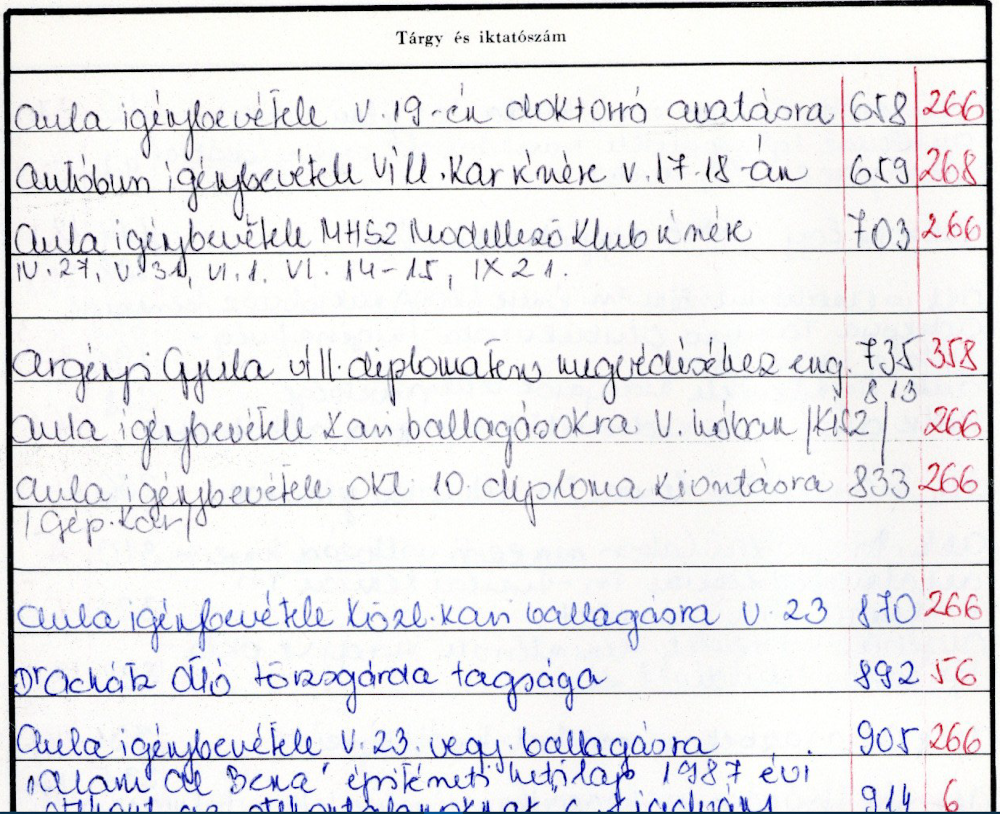 Tárgy és iktatószám
Aula igénybevétele V. 19-én doktorrá avatásra 658 266
Autóbusz igénybevétele Vill. Kar kérésére V. 17-18-án 659 268
Aula igénybevétele MHSZ Modellező Klub kérésére 703 266
IV. 27, V. 31, VI. 1. VI. 14-15, IX 21.
Gyula vill. diplomaterv megvédéséhez eng. 735 358
813
Aula igénybevétele Kari ballagásokra V. hóban /KISZ/ 266
Aula igénybevétele Okt. 10. diploma kiosztásra 833 266
/Gép. Kar/
Aula igénybevétele Közl. kari ballagásra V. 23 870 266
Dr Achátz Ottó törzsgárda tagsága 892 56
Aula igénybevétele V. 23. vegy. ballagásra 905 266
építészeti hetilap 1987 évi
914 6